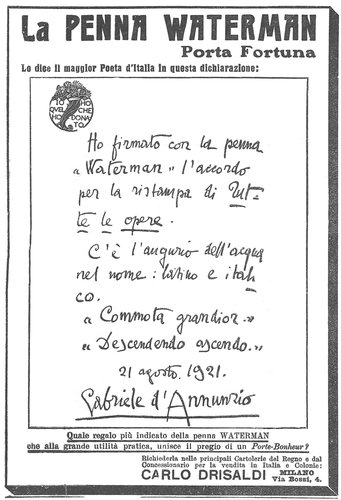 La PENNA WATERMAN
Porta Fortuna
Lo dice il maggior Poeta d'Italia in questa dichiarazione:
IO HO
QUEL CHE
HO DONATO
Ho firmato con la penna
"Waterman" l'accordo
per la ristampa di Tut-
te le opere.
C'è l'augurio dell'acqua
nel nome: latino e itali
co.
"Commota grandior."
"Descendendo ascendo."
21 agosto. 1921.
Gabriele d'Annunzio
Quale regalo più indicato della penna WATERMAN
che alla grande utilità pratica, unisce il pregio di un Porte-Bonheur?
Richiederla nelle principali Cartolerie del Regno e dal
Concessionario per la vendita in Italia e Colonie:
CARLO DRISALDI
MILANO
Via Bossi, 4.